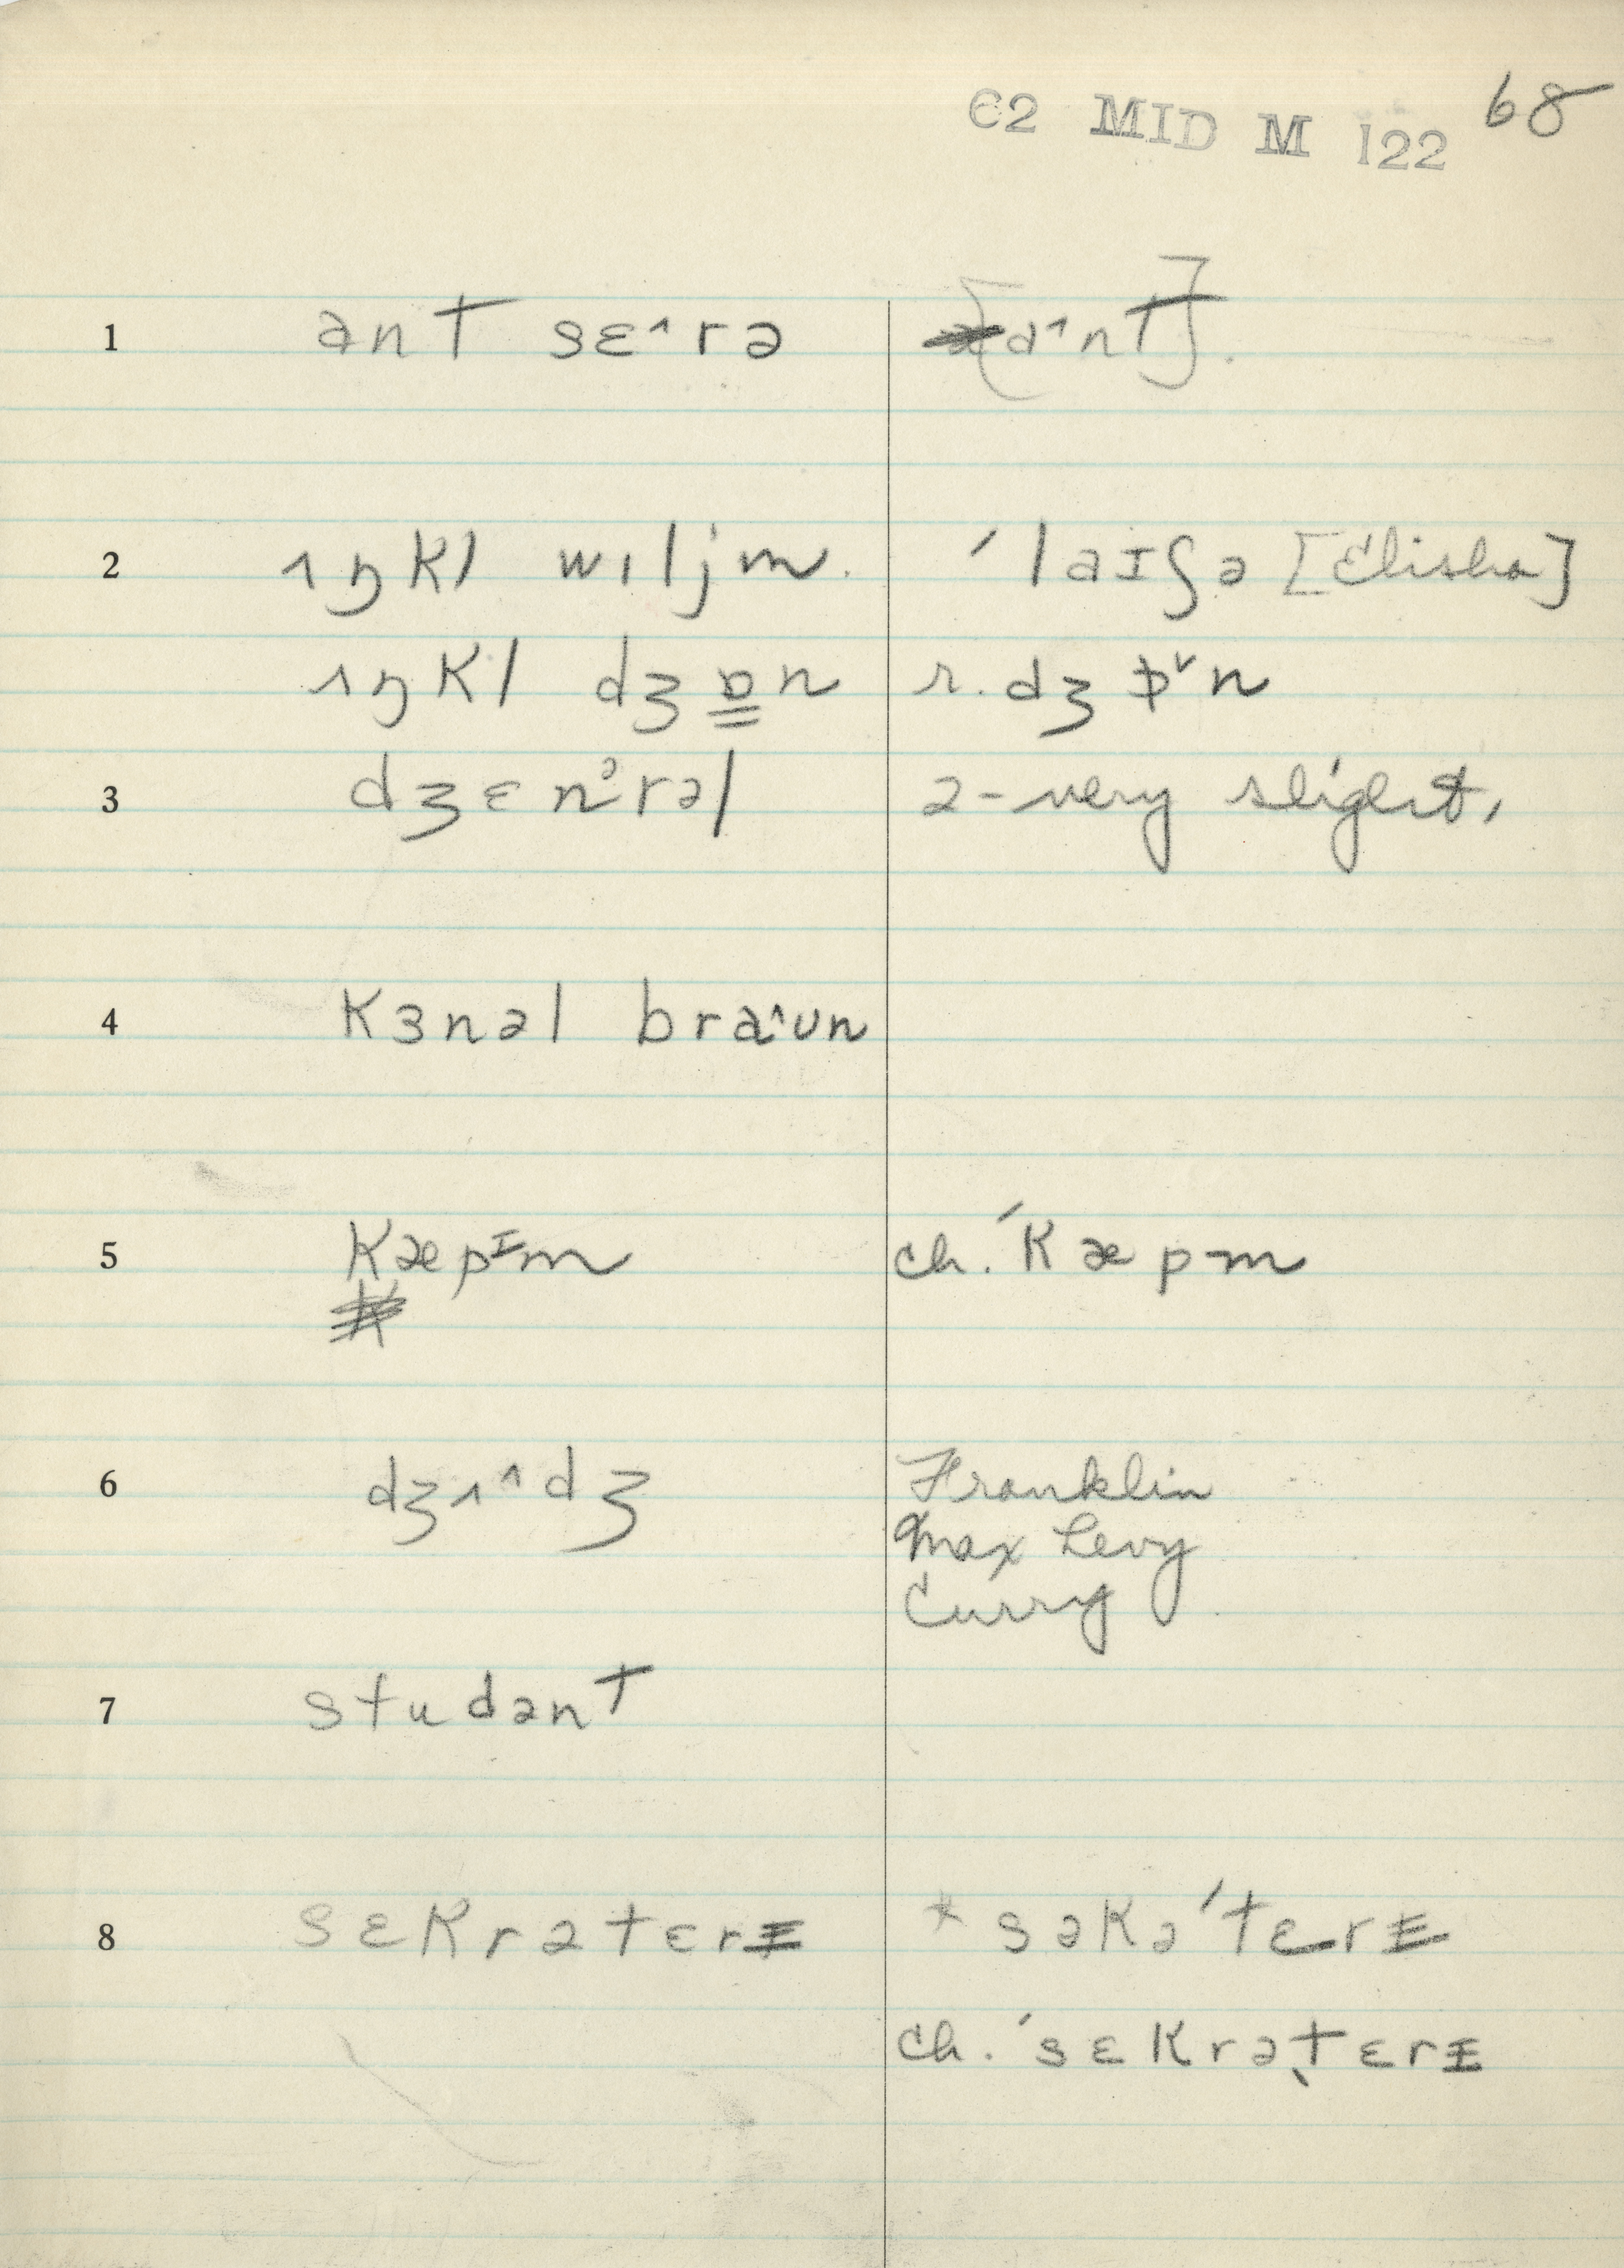 62 MID M 122 68
1 ant sɛ˄rə [a˄nt].
2 ʌŋkl wɪljm. ˈlaɪʃə [Elisha]
ʌŋkl dʒɒ̳n r. dʒɒ˅n
3 dʒɛnᵊrəl ə-very slight,
4 kɜnəl bra˄ʊn
5 kæpᶦm ch. ˈkæpm
6 dʒʌ˄dʒ Franklin
Max Levy
Curry
7 studənt
8 sɛkrətɛrɪ * səkəˈtɛrɪ
ch. ˈsɛkrəˌtɛrɪ